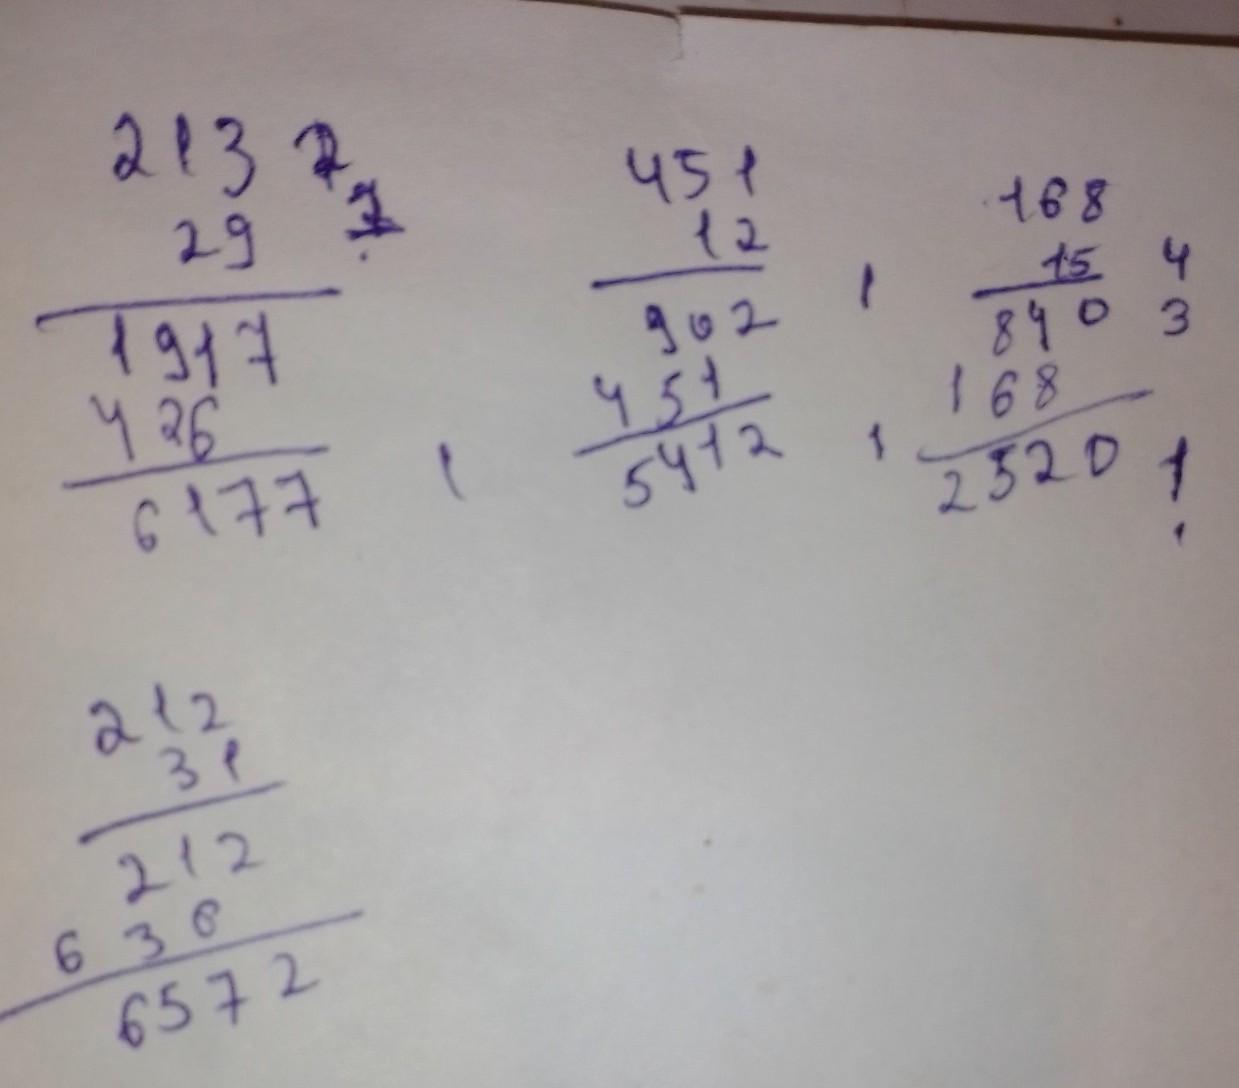 213 2
29 7
1917
426
6177
451
12
902
451
5412
168
15 4
840 3
168
2520
212
31
212
636
6572